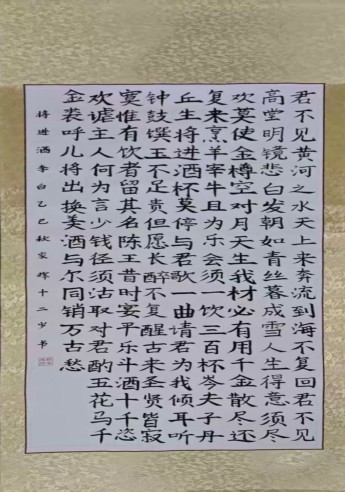 君不见黄河之水天上来奔流到海不复回君不见
高堂明镜悲白发朝如青丝暮成雪人生得意须尽
欢莫使金樽空对月天生我材必有用千金散尽还
复来烹羊宰牛且为乐会须一饮三百杯岑夫子丹
丘生将进酒杯莫停与君歌一曲请君为我倾耳听
钟鼓馔玉不足贵但愿长醉不复醒古来圣贤皆寂
寞惟有饮者留其名陈王昔时宴平乐斗酒十千恣
欢谑主人何为言少钱径须沽取对君酌五花马千
金裘呼儿将出换美酒与尔同销万古愁
将进酒李白乙巳秋家十二书